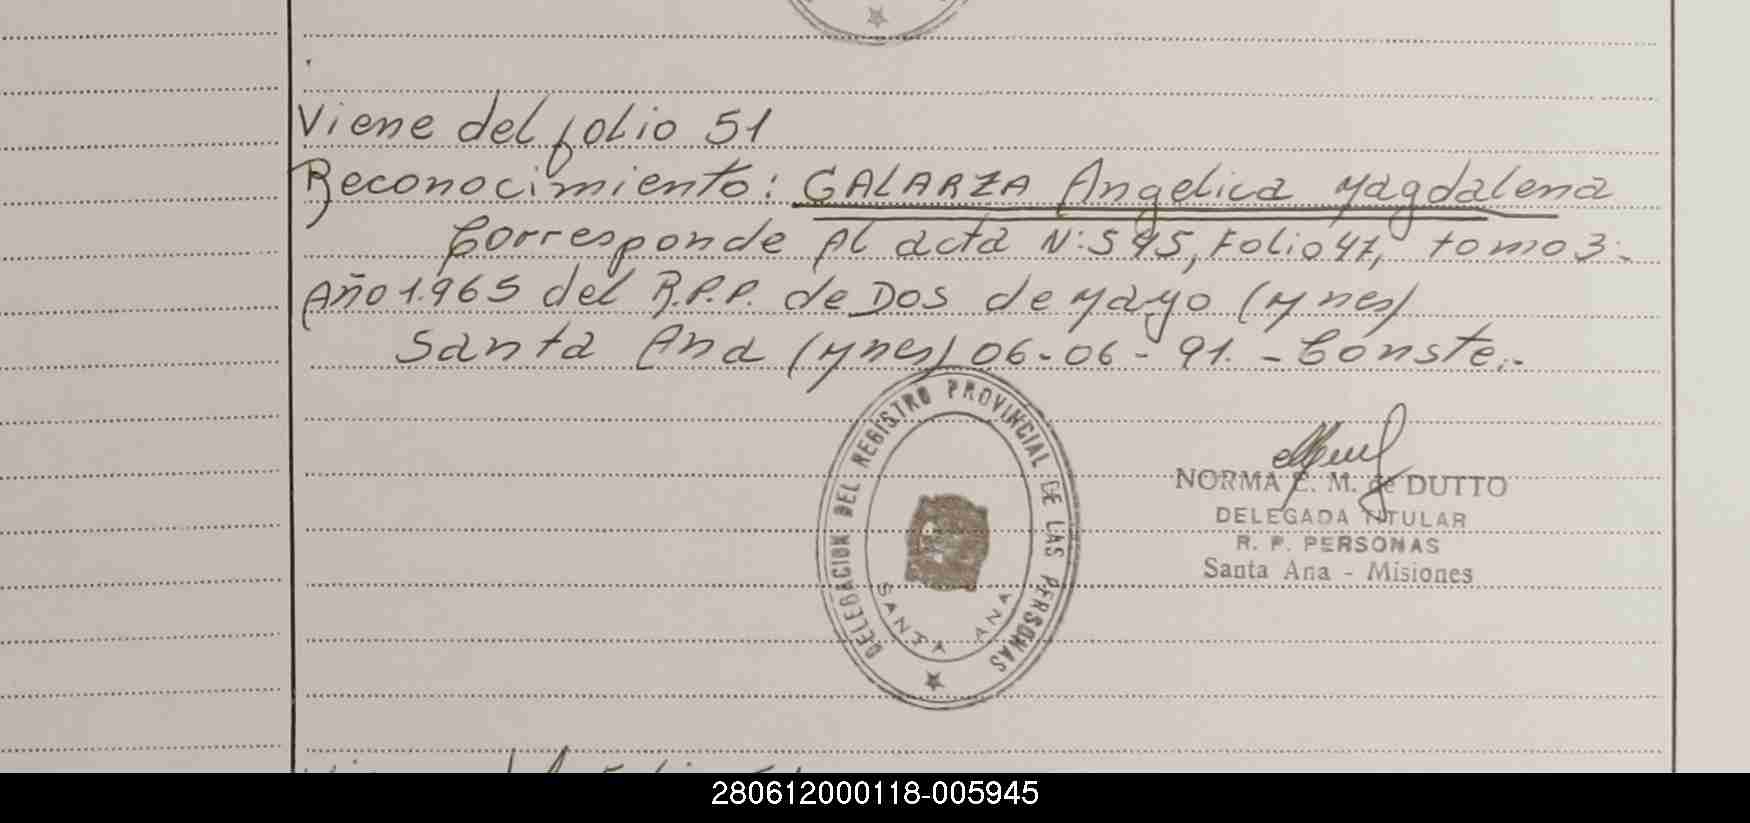 Viene del folio 51
Reconocimiento: GALARZA Angelica Magdalena
Corresponde Al acta N: 545, Folio 47, tomo 3.
Año 1.965 del R.P.P. de Dos de Mayo (Mnes)
Santa Ana (Mnes) 06-06-91. - Conste.-
DELEGACION DEL REGISTRO PROVINCIAL DE LAS PERSONAS
SANTA ANA
NORMA E. M. de DUTTO
DELEGADA TITULAR
R. P. PERSONAS
Santa Ana - Misiones
280612000118-005945